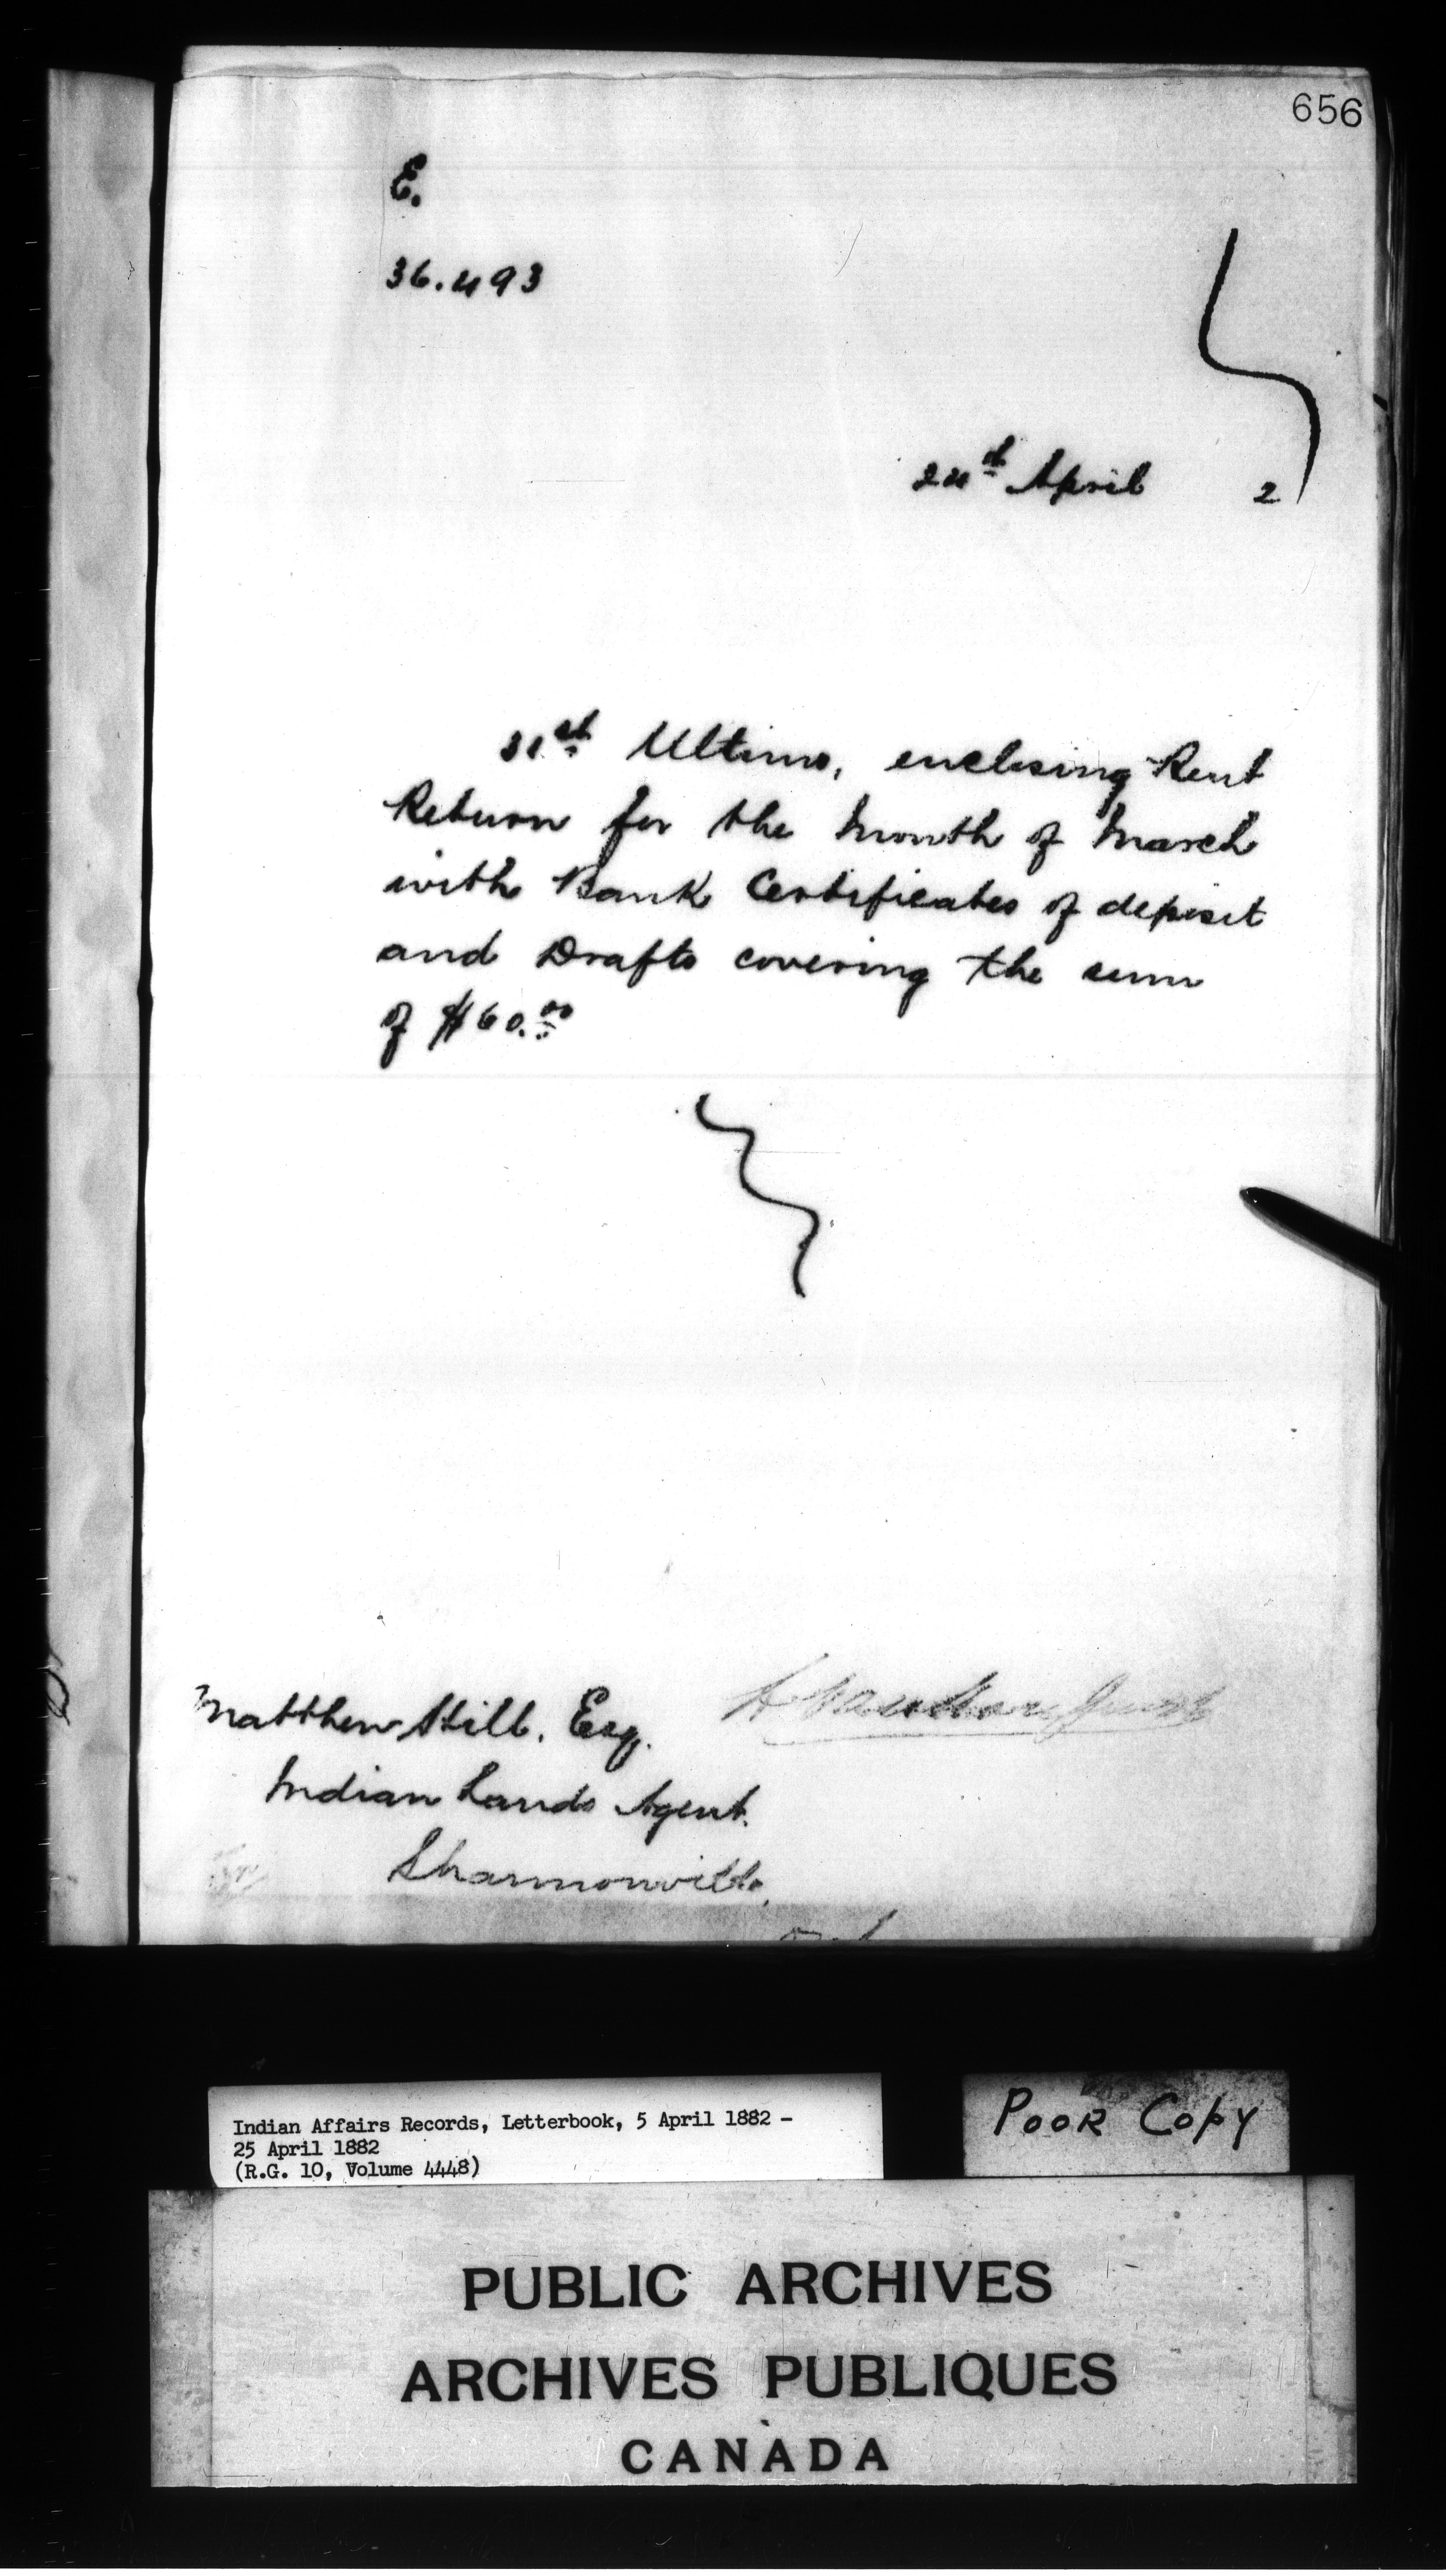 656
E.
36.493
24th April 2
31st Ultimo, enclosing Rent
Return for the Month of March
with Bank Certificates of deposit
and Drafts covering the sum
of $60.00
Matthew Hill. Esq.
Indian Lands Agent.
Shannonville.
Indian Affairs Records, Letterbook, 5 April 1882 -
25 April 1882
(R.G. 10, Volume 4448)
POOR COPY
PUBLIC ARCHIVES
ARCHIVES PUBLIQUES
CANADA